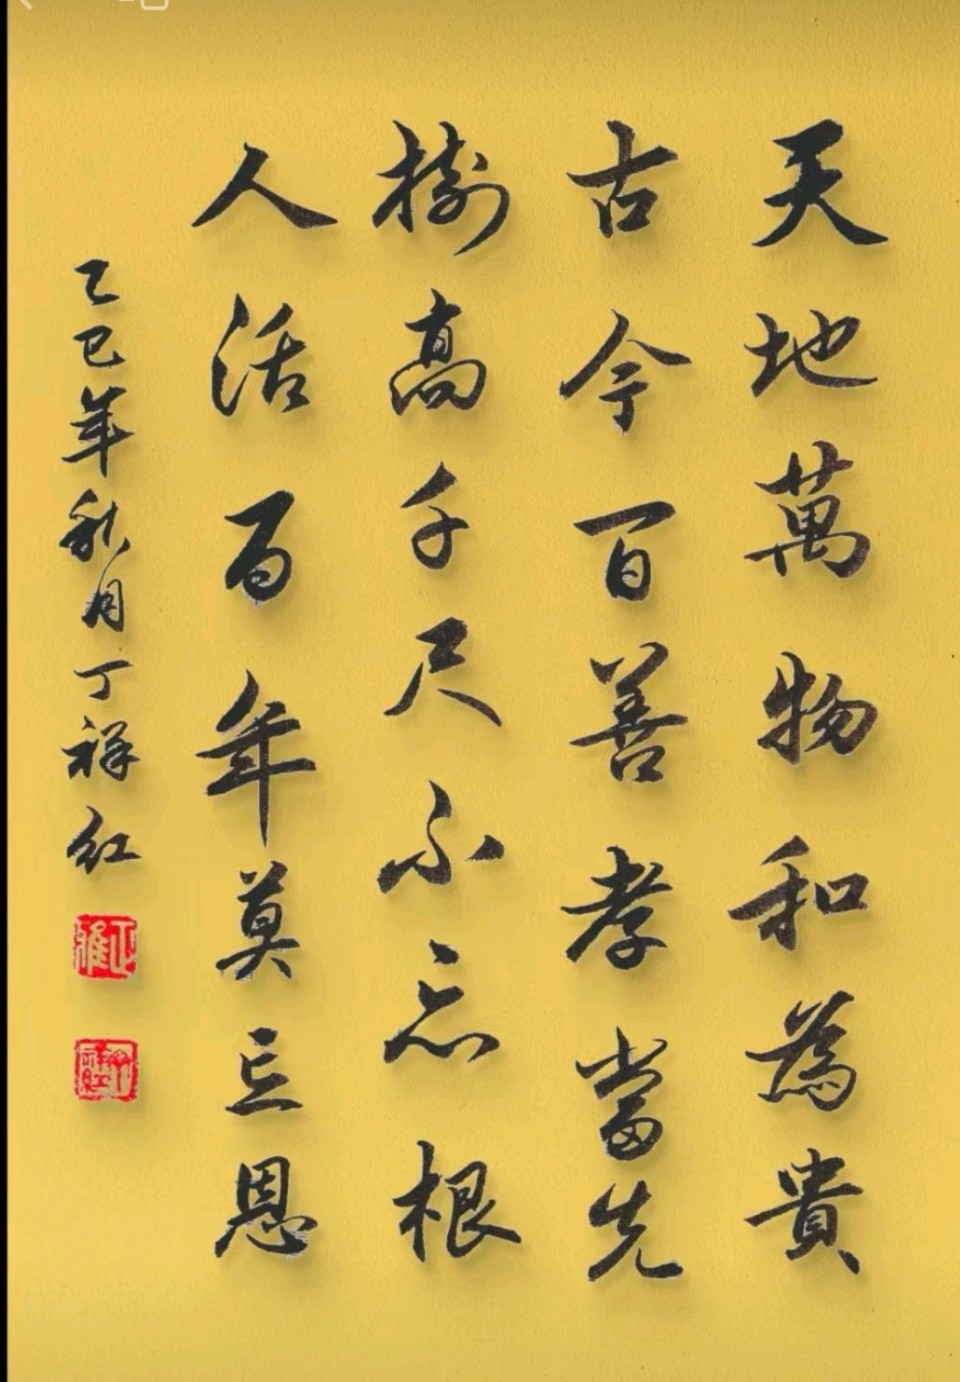 天地萬物和為貴
古今百善孝當先
樹高千尺不忘根
人活百年莫忘恩
乙巳年秋月丁祥红